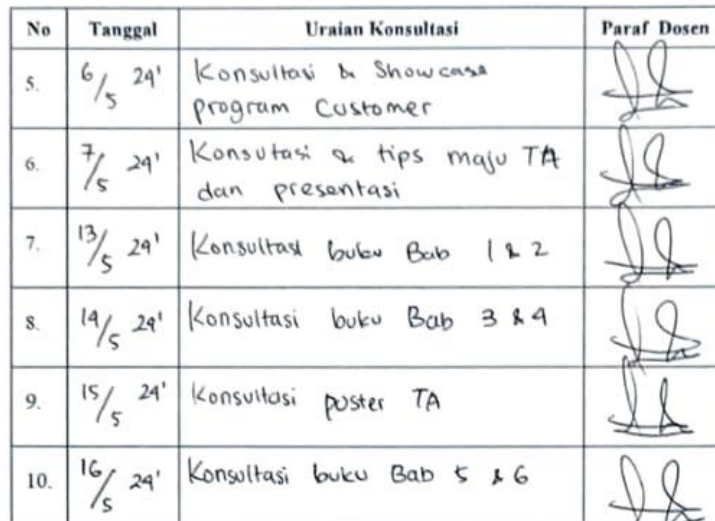 No Tanggal Uraian Konsultasi Paraf Dosen
5. 6/5 24' Konsultasi & Showcase
program Customer
6. 7/5 24' Konsutasi & tips maju TA
dan presentasi
7. 13/5 24' Konsultasi buku Bab 1 & 2
8. 14/5 24' Konsultasi buku Bab 3 & 4
9. 15/5 24' Konsultasi poster TA
10. 16/5 24' Konsultasi buku Bab 5 & 6